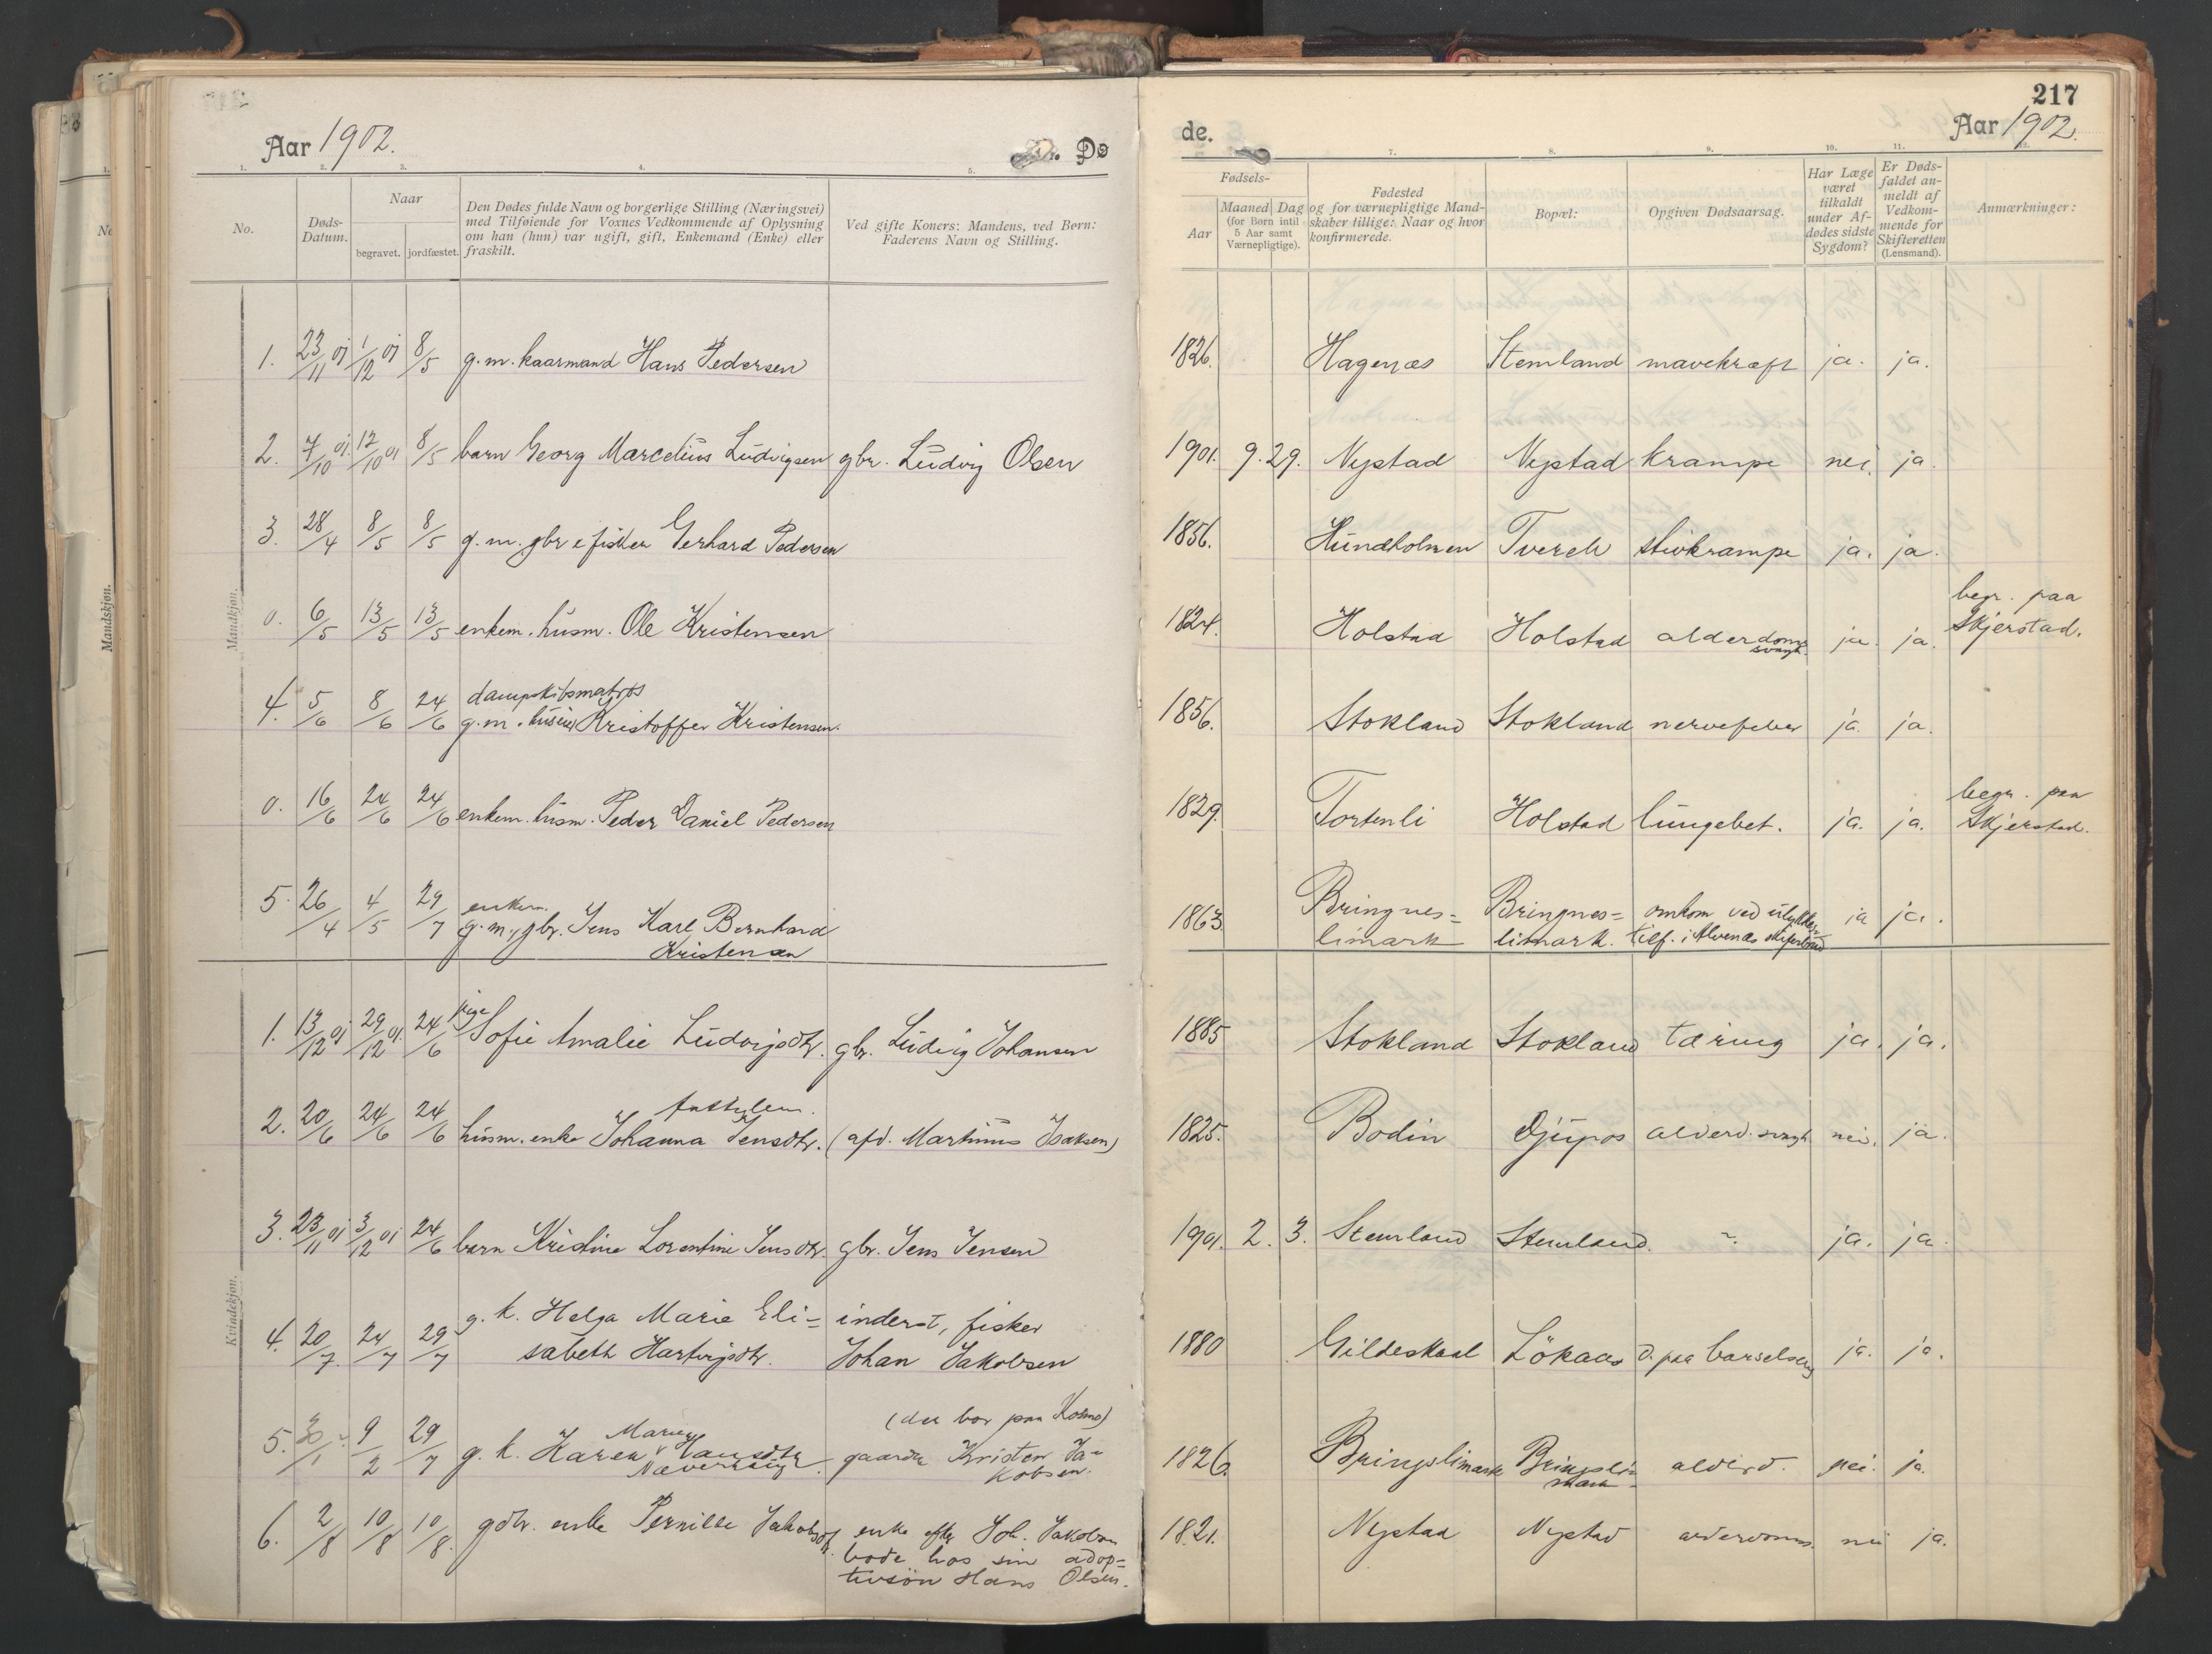 217
Aar 1902. Dø
de. Aar 1902.
1. 2. 3. 4. 5. 7. 8. 9. 10. 11. 12.
No. Døds-Datum. Naar begravet. jordfæstet. Den Dødes fulde Navn og borgerlige Stilling (Næringsvei) med Tilføiende for Voxnes Vedkommende af Oplysning om han (hun) var ugift, gift, Enkemand (Enke) eller fraskilt. Ved gifte Koners: Mandens, ved Børn: Faderens Navn og Stilling.
Fødsels- Aar Maaned Dag (for Børn intil 5 Aar samt Værnepligtige). Fødested og for værnepligtige Mandskaber tillige: Naar og hvor konfirmerede. Bopæl: Opgiven Dødsaarsag. Har Læge været tilkaldt under Afdødes sidste Sygdom? Er Dødsfaldet anmeldt af Vedkommende for Skifteretten (Lensmand). Anmærkninger:
Mandskjøn.
Mandkjøn.
1. 23/11 01 1/12 01 8/5 g. m. kaarmand Hans Pedersen 1826. Hagenæs Stemland mavekræft ja. ja.
2. 7/10 01. 12/10 01 8/5 barn Georg Marcelius Ludvigsen gbr. Ludvig Olsen 1901. 9. 29. Nystad Nystad krampe nei. ja.
3. 28/4 8/5 8/5 g. m. gbr & fisker Gerhard Pedersen 1856. Hundholmen Tverelv stivkrampe ja. ja.
0. 6/5 13/5 13/5 enkem. husm. Ole Kristensen 1824. Holstad Holstad alderdoms svagh. ja. ja. begr. paa Skjerstad.
4. 5/6 8/6 24/6 dampskibsmatros g. m. huseier Kristoffer Kristensen. 1856. Stokland Stokland nervefeber ja. ja.
0. 16/6 24/6 24/6 enkem. husm. Peder Daniel Pedersen 1829. Tortenli Holstad lungebet. ja. ja. begr. paa Skjerstad.
5. 26/4 4/5 29/7 enkem. g. m., gbr. Jens Karl Bernhard Kristensen 1863. Bringneslimark Bringneslimark. omkom ved ulykkestilf. i Alvenæs skiferbrud ja ja.
Kvindekjøn.
1. 13/12 01 29/12 01. 24/6 pige Sofie Amalie Ludvigsdtr. gbr. Ludvig Johansen 1885 Stokland Stokland tæring ja. ja.
2. 20/6 24/6 24/6 husm. enke Johanna Jensdtr. (afd. Martinus Isaksen) 1825. Bodin Djupos alderd. svagh. nei. ja.
3. 23/11 01 3/12 01 24/6 barn Kristine Lorentine Jensdtr. gbr. Jens Jensen 1901. 2. 3. Stemland Stemland. ja. ja.
4. 20/7. 24/7 29/7 g. k. Helga Marie Elisabeth Hartvigsdtr. inderst, fisker Johan Jakobsen 1880 Gildeskaal Lökaas d. paa barselseng ja. ja.
5. 30/1 9/2 29/7 g. k. Karen Marie Hansdtr (der bor paa Kosmo) gaardbr Kristen Jakobsen. 1826. Bringslimark Bringslimark alderd. nei. ja.
6. 2/8 10/8 10/8. gdbr. enke Pernille Jakobsdtr. enke efter Joh. Jakobsen bode hos sin adoptivsön Hans Olsen. 1821. Nystad Nystad alderdoms nei ja.